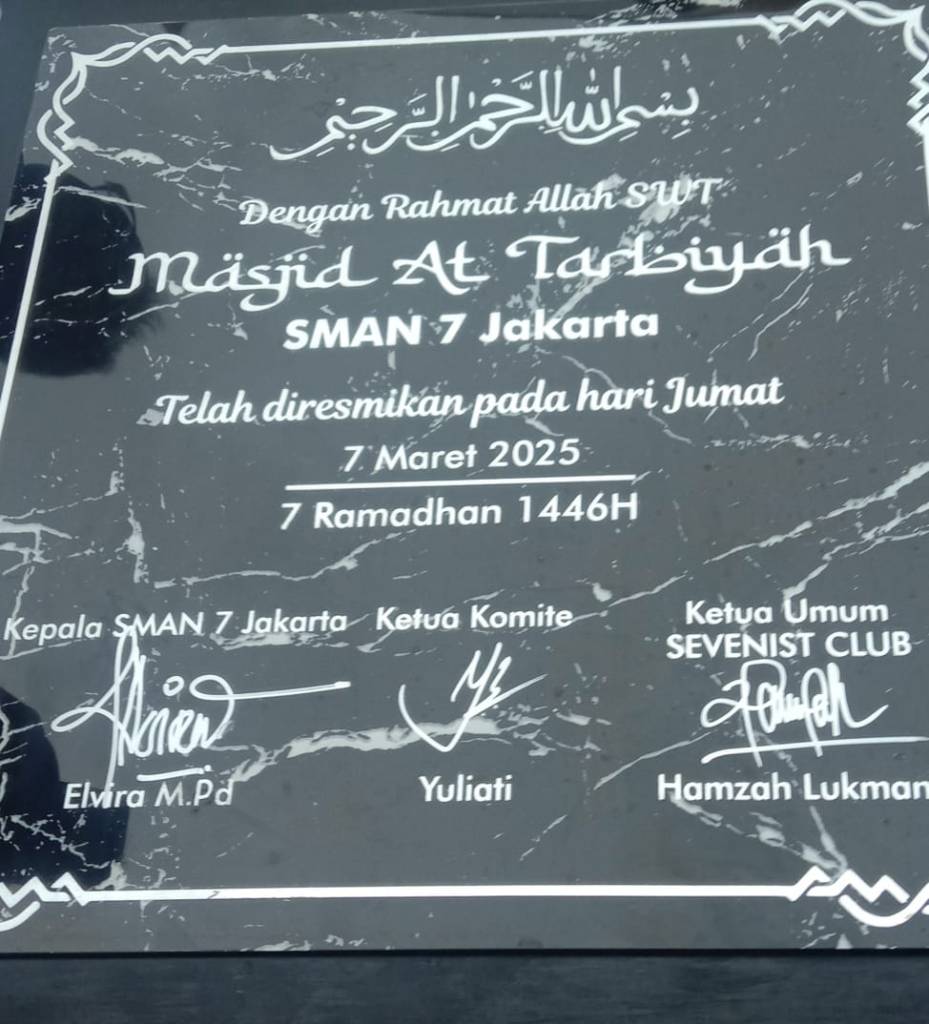 بسم الله الرحمن الرحيم
Dengan Rahmat Allah SWT
Masjid At Tarbiyah
SMAN 7 Jakarta
Telah diresmikan pada hari Jumat
7 Maret 2025
7 Ramadhan 1446H
Kepala SMAN 7 Jakarta
Elvira M.Pd
Ketua Komite
Yuliati
Ketua Umum
SEVENIST CLUB
Hamzah Lukman